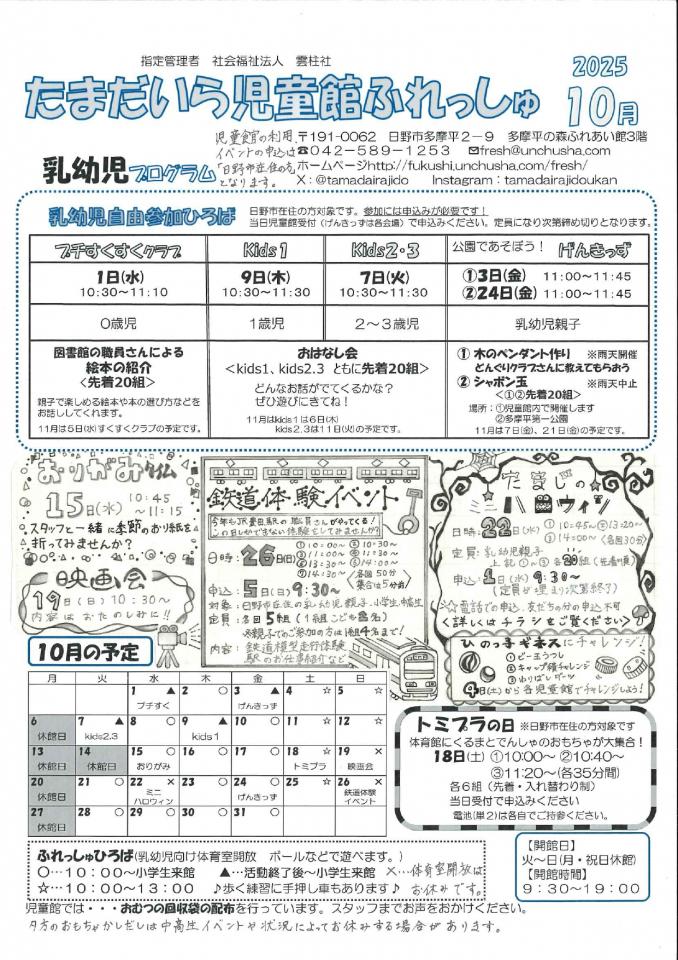 指定管理者　社会福祉法人　雲柱社
たまだいら児童館ふれっしゅ
2025
10月
児童館の利用、
イベントの申込は
「日野市在住の方」
となります。
〒191-0062　日野市多摩平2-9　多摩平の森ふれあい館3階
☎042-589-1253　✉fresh@unchusha.com
ホームページhttp://fukushi.unchusha.com/fresh/
X：@tamadairajido　Instagram：tamadairajidoukan
乳幼児プログラム
乳幼児自由参加ひろば
日野市在住の方対象です。参加には申込みが必要です！
当日児童館受付（げんきっずは各会場）で申込みください。定員になり次第締め切りとなります。
プチすくすくクラブ
Kids1
Kids2・3
公園であそぼう！　げんきっず
1日(水)
10:30～11:10
9日(木)
10:30～11:30
7日(火)
10:30～11:30
①3日(金)　11:00～11:45
②24日(金)　11:00～11:45
0歳児
1歳児
2～3歳児
乳幼児親子
図書館の職員さんによる
絵本の紹介
<先着20組>
親子で楽しめる絵本や本の選び方などを
お話ししてくれます。
11月は5日(水)すくすくクラブの予定です。
おはなし会
<kids1、kids2.3　ともに先着20組>
どんなお話がでてくるかな？
ぜひ遊びにきてね！
11月はkids1は6日(木)
kids2.3は11日(火)の予定です。
① 木のペンダント作り　※雨天開催
どんぐりクラブさんに教えてもらおう
② シャボン玉　※雨天中止
<①②先着20組>
場所：①児童館内で開催します
②多摩平第一公園
11月は7日(金)、21日(金)の予定です。
おりがみタイム
15日(水)　10:45
～11:15
スタッフと一緒に季節のおり紙を
折ってみませんか？
映画会
19日(日)10:30～
内容はおたのしみに!!
鉄道体験イベント
今年もJR豊田駅の職員さんがやってくる！
この日しかできない体験をしてみませんか？
日時：26日(日)
①10:00～　②10:30～
③11:00～　④11:30～
⑤13:30～　⑥14:00～
⑦14:30～
各回50分
集合は5分前
申込：5日(日)9:30～
対象：日野市在住の乳幼児親子、小学生、中高生
定員：各回5組(1組こども3名)
※親子でのご参加の方は1組4名まで！
内容：鉄道模型走行体験
駅のお仕事紹介など
たまじの☆
ミニハロウィン
日時：22日(水)
①10:45～②13:20～
③14:00～　(各回30分)
定員：乳幼児親子
上記①②③各20組(先着順)
申込：1日(水)9:30～
(定員が埋まり次第終了)
☆電話での申込、友だち分の申込不可
<詳しくはチラシをご覧ください>
ひのっ子ギネスにチャレンジ！
① ビー玉うつし
② キャップ積チャレンジ
③ わりばしゲッツ
4日(土)から各児童館でチャレンジしよう！
10月の予定
月　火　水　木　金　土　日
1　▲
プチすく
2　○
3　▲
げんきっず
4　☆
5　☆
6
休館日
7　▲
kids2.3
8　○
9　▲
kids1
10　○
11　☆
12　☆
13
休館日
14
休館日
15　○
おりがみ
16　○
17　○
18　☆
トミプラ
19　×
映画会
20
休館日
21　○
22　×
ミニ
ハロウィン
23　○
24　○
げんきっず
25　☆
26　×
鉄道体験
イベント
27
休館日
28　○
29　○
30　○
31　○
トミプラの日　※日野市在住の方対象です
体育館にくるまとでんしゃのおもちゃが大集合！
18日(土)①10:00～　②10:40～
③11:20～(各35分間)
各6組（先着・入れ替わり制）
当日受付で申込みください
電池(単2)は各自でご持参ください。
ふれっしゅひろば(乳幼児向け体育室開放　ボールなどで遊べます。)
○…10：00～小学生来館　▲…活動終了後～小学生来館　×…体育室開放は
☆…10：00～13：00　♪歩く練習に手押し車もあります♪　お休みです。
【開館日】
火～日(月・祝日休館)
【開館時間】
9：30～19：00
児童館では・・・おむつの回収袋の配布を行っています。スタッフまでお声をおかけください。
夕方のおもちゃかしだしは中高生イベントや状況によってお休みする場合があります。